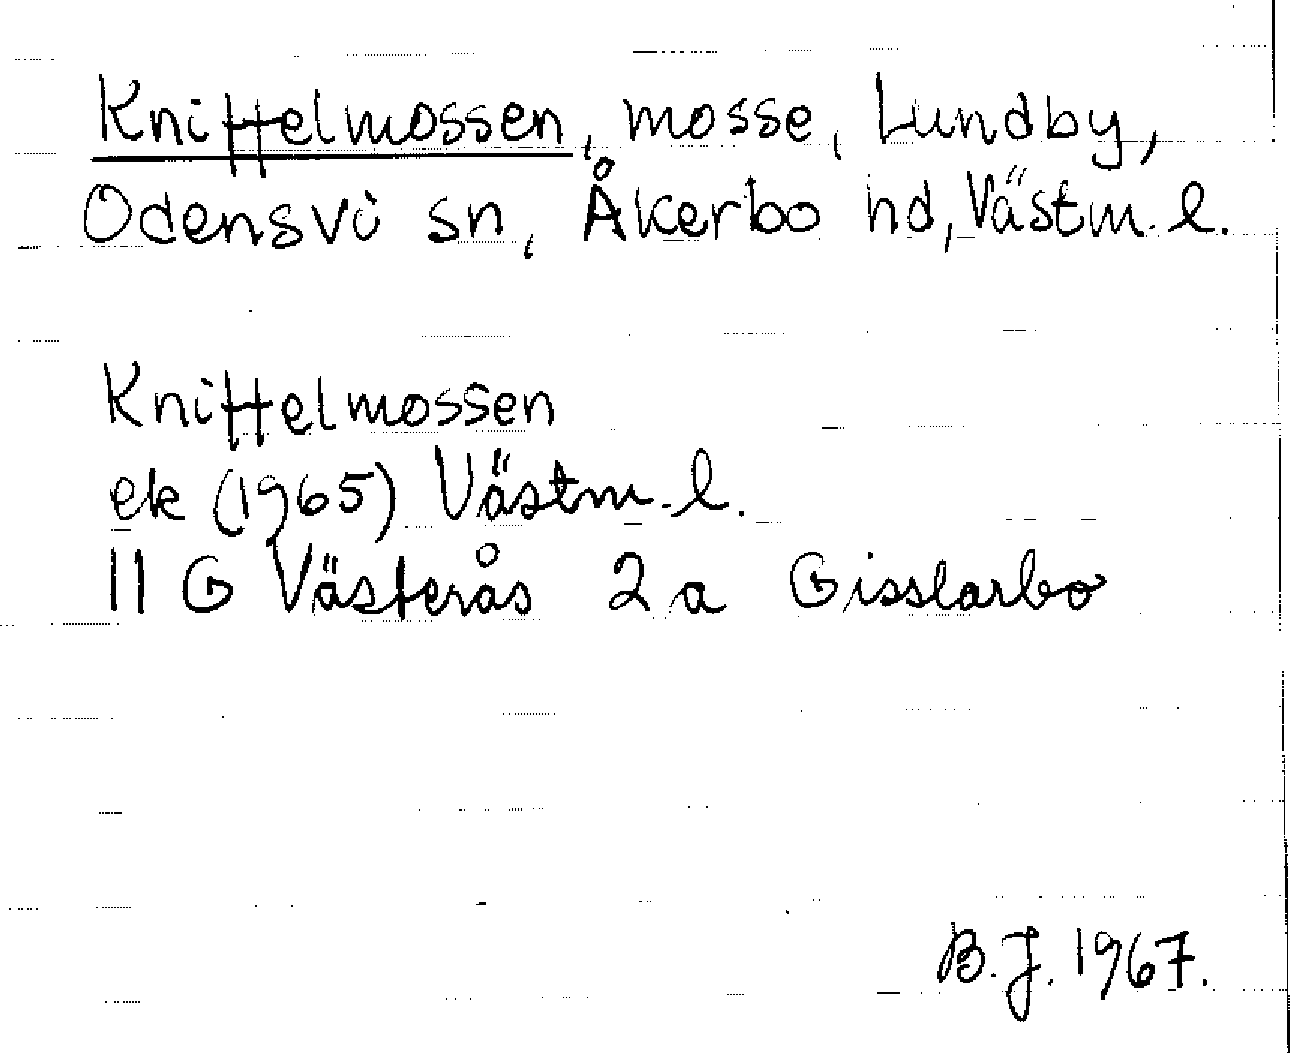 Knittelmossen, mosse, Lundby,
Odensvi sn, Åkerbo hd, Västm. l.
Knittelmossen
ek (1965) Västm. l.
11 G Västerås 2 a Gisslarbo
B.J. 1967.